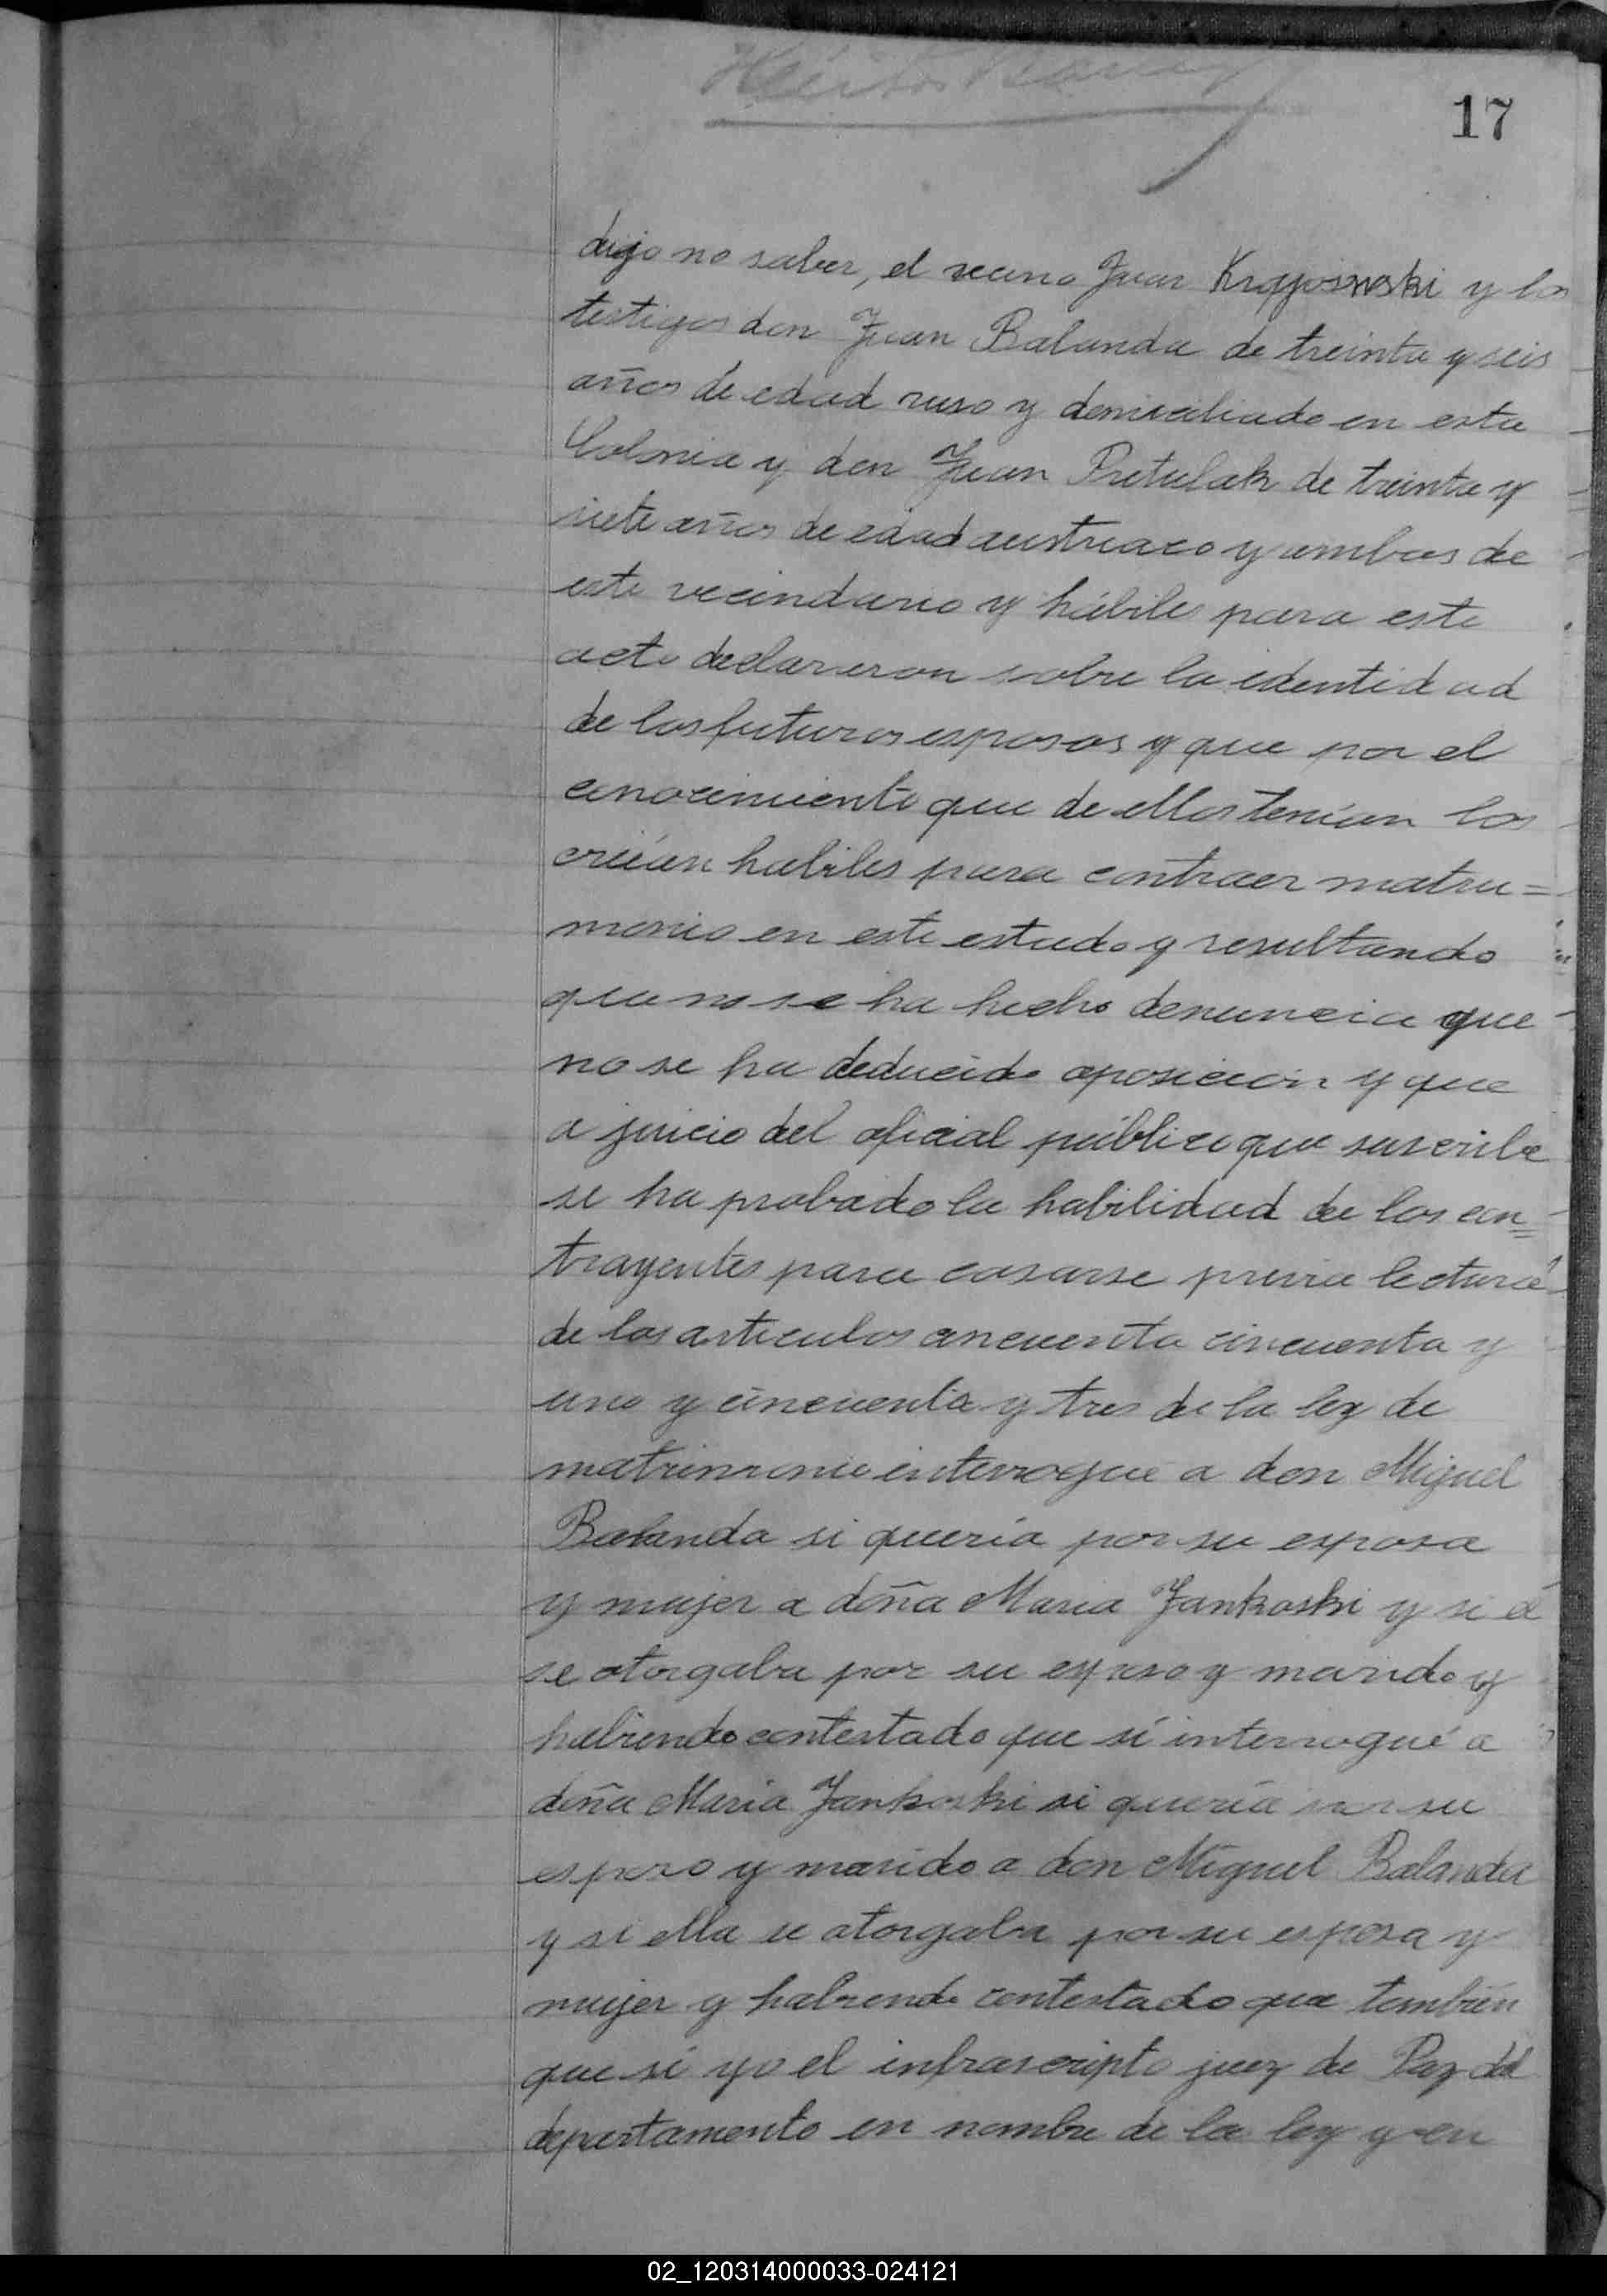 17
dijo no saber, el vecino Juan Krajosnski y los
testigos don Juan Balanda de treinta y seis
años de edad ruso y domiciliado en esta
Colonia y don Juan Pretulak de treinta y
siete años de edad austriaco y ambos de
este vecindario y hábiles para este
acto declararon sobre la identidad
de los futuros esposos y que por el
conocimiento que de ellos tenían los
creían habiles para contraer matri=
monio en este estado y resultando
que no se ha hecho denuncia que
no se ha deducido oposición y que
a juicio del oficial público que suscribe
se ha probado la habilidad de los con=
trayentes para casarse previa lectura
de los articulos cincuenta cincuenta y
uno y cincuenta y tres de la ley de
matrimonio interrogué a don Miguel
Balanda si quería por su esposa
y mujer a doña Maria Jankoski y si él
se otorgaba por su esposo y marido y
habiendo contestado que sí interrogué a
doña Maria Jankoski si quería por su
esposo y marido a don Miguel Balanda
y si ella se otorgaba por su esposa y
mujer y habiendo contestado que también
que sí yo el infrascripto juez de Paz del
departamento en nombre de la ley y en
02_120314000033-024121